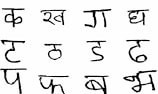 क ख ग घ
ट ठ ड ढ
प फ ब भ